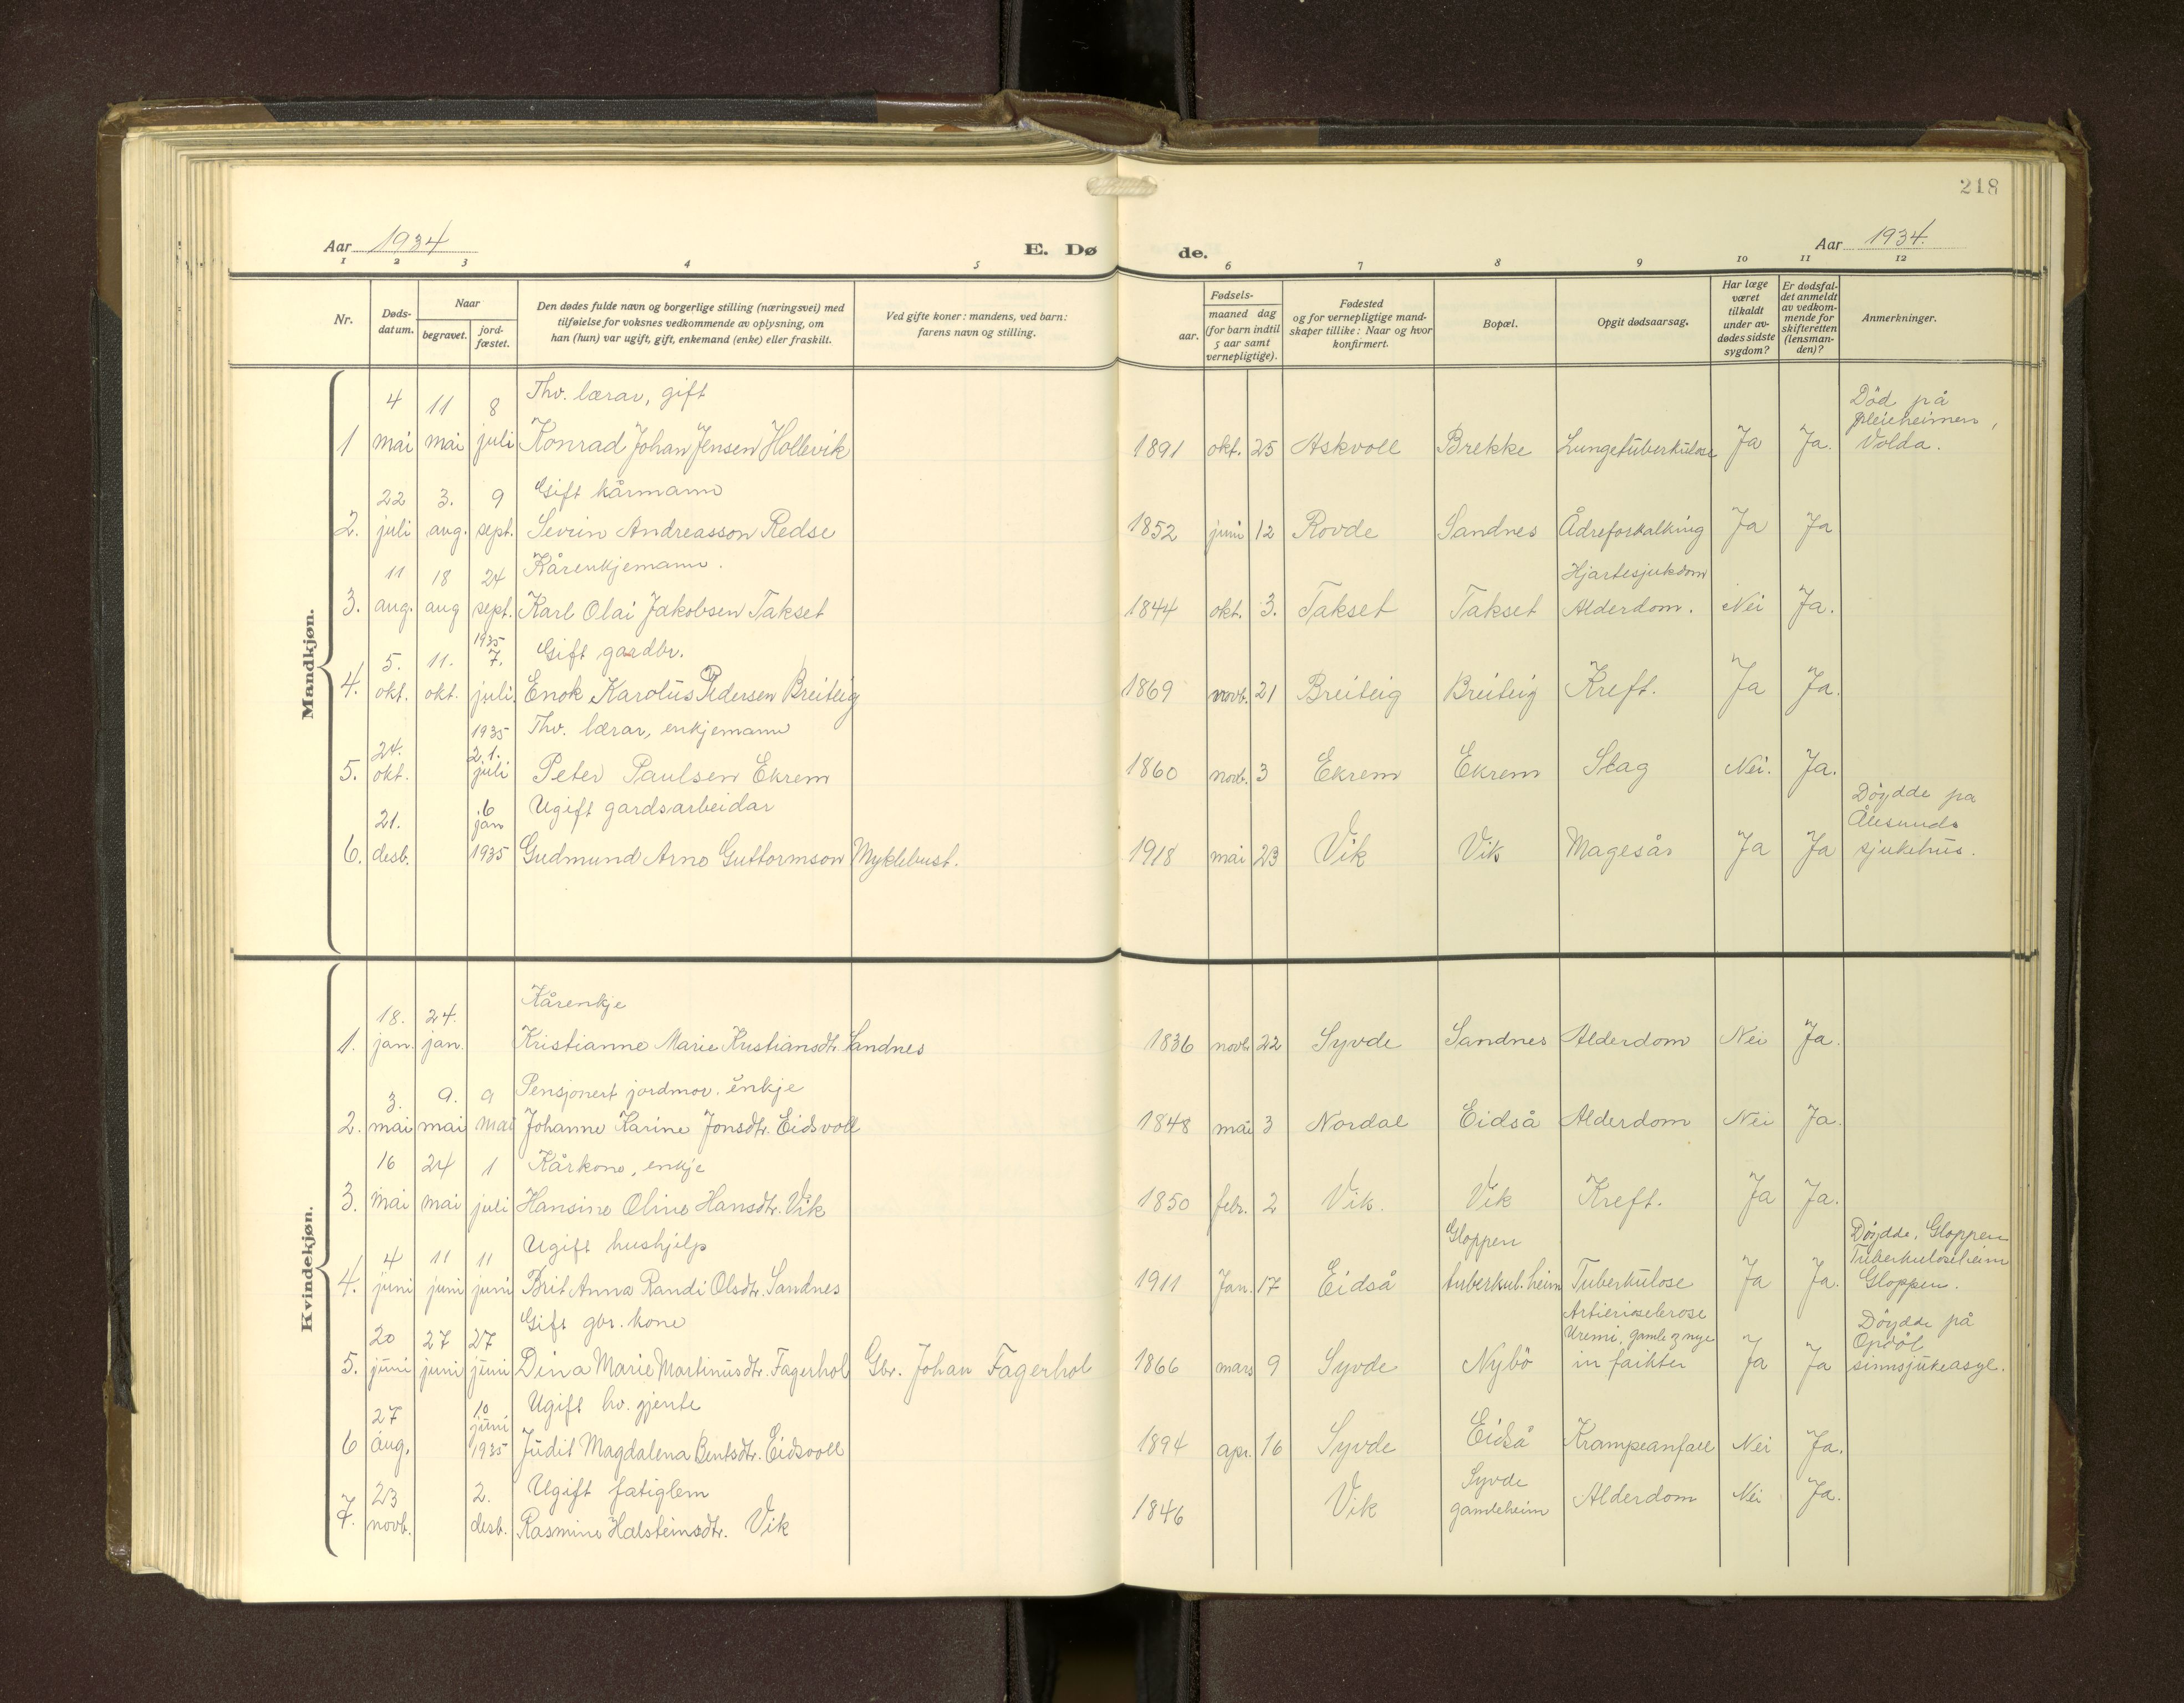 218
Aar 1934
E. Dø de.
Aar 1934.
1 2 3 4 5 6 7 8 9 10 11 12
Nr.
Døds-datum.
Naar
begravet.
jord-fæstet.
Den dødes fulde navn og borgerlige stilling (næringsvei) med
tilføielse for voksnes vedkommende av oplysning, om
han (hun) var ugift, gift, enkemand (enke) eller fraskilt.
Ved gifte koner: mandens, ved barn:
farens navn og stilling.
Fødsels-
aar.
maaned dag
(for barn indtil
5 aar samt
vernepligtige).
Fødested
og for vernepligtige mand-
skaper tillike: Naar og hvor
konfirmert.
Bopæl.
Opgit dødsaarsag.
Har læge
været
tilkaldt
under av-
dødes sidste
sygdom?
Er dødsfal-
det anmeldt
av vedkom-
mende for
skifteretten
(lensman-
den)?
Anmerkninger.
Mandkjøn.
4 11 8 Thv. lærar, gift Død på
pleieheimen,
1 mai mai juli Konrad Johan Jensen Hollevik 1891 okt. 25 Askvoll Brekke Lungetuberkulose Ja Ja. Volda.
22 3. 9 Gift kårmann
2. juli aug. sept. Severin Andreasson Redse 1852 juni 12 Rovde Sandnes Ådreforkalking Ja Ja
11 18 24 Kårenkjemann. Hjartesjukdom
3. aug. aug sept. Karl Olai Jakobsen Takset 1844 okt. 3. Takset Takset Alderdom. Nei Ja.
1935
5. 11. 7. Gift gardbr.
4. okt. okt. juli. Enok Karolus Pedersen Breiteig 1869 novb. 21 Breiteig Breiteig Kreft. Ja Ja.
1935 Thv. lærar, enkjemann
24. 21.
5. okt. juli Peter Paulsen Ekrem 1860 novb. 3 Ekrem Ekrem Slag Nei. Ja.
21. 6 Ugift gardsarbeidar Døydde pa
jan Ålesunds
6. desb. 1935 Gudmund Arne Guttormson Myklebust. 1918 mai 23 Vik Vik Magesår Ja Ja sjukehus.
Kvindekjøn.
18. 24. Kårenkje
1. jan. jan. Kristianne Marie Kristiansdtr. Sandnes 1836 novb. 22 Syvde Sandnes Alderdom Nei Ja.
3. 9. 9 Pensjonert jordmor. enkje
2. mai mai mai Johanne Karine Jonsdtr. Eidsvoll 1848 mai 3 Nordal Eidså Alderdom Nei Ja.
16 24 1 Kårkone, enkje
3. mai mai juli Hansine Oline Hansdtr. Vik 1850 febr. 2 Vik. Vik Kreft. Ja Ja.
4 11 11 Ugift hushjelp Gloppen Døydde, Gloppen
Tuberkuloseheim
4. juni juni juni Brit Anna Randi Olsdtr. Sandnes 1911 Jan. 17 Eidså tuberkul. heim Tuberkulose Ja Ja. Gloppen.
20 27 27 Gift gbr. kone Artieriosclerose Døydde på
Uremi, gamle og nye Opdøl
5. juni juni juni Dina Marie Martinusdtr. Fagerhol Gbr. Johan Fagerhol 1866 mars 9 Syvde Nybö in faikter Ja Ja sinnsjukeasyl.
27 10 Ugift hv. gjente
juni
6 aug. 1935 Judit Magdalena Bentsdtr. Eidsvoll 1894 apr. 16 Syvde Eidså Krampeanfall Nei Ja.
23 2. Ugift fatiglem Syvde
7. novb. desb. Rasmine Halsteinsdtr. Vik 1846 Vik gamleheim Alderdom Nei Ja.